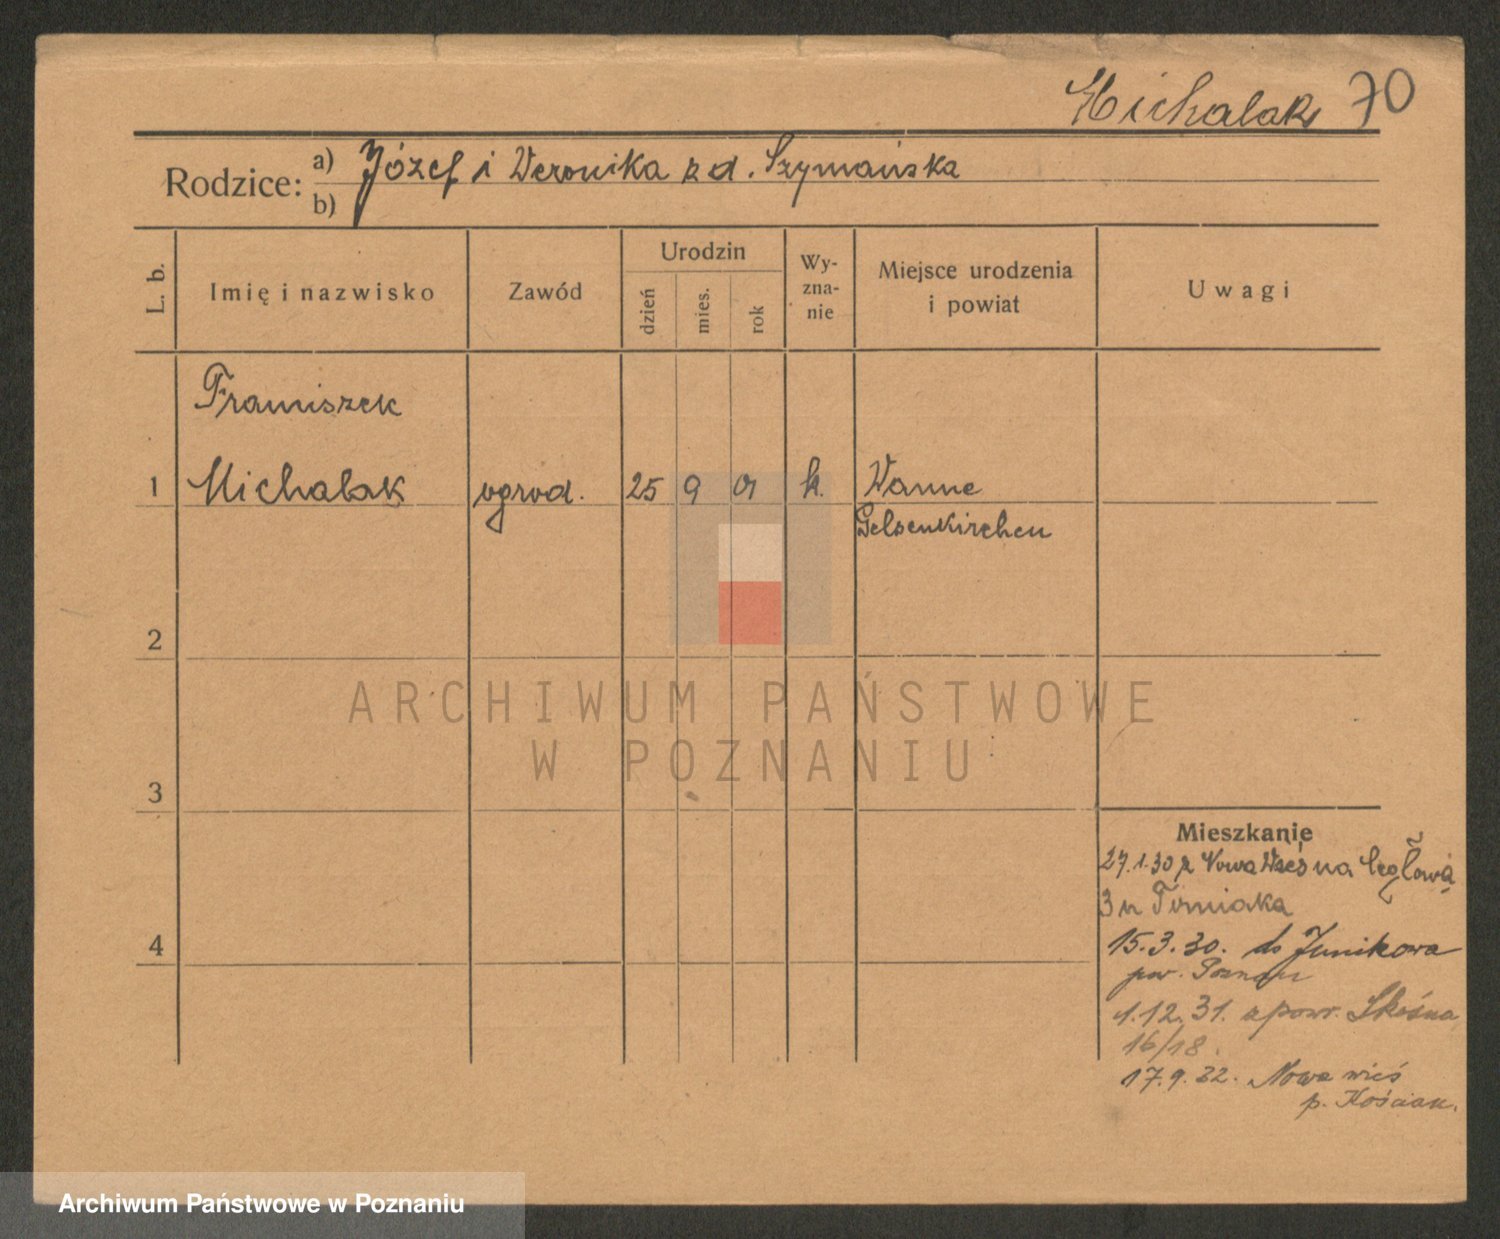 Michalak 70
Rodzice: a) Józef i Weronika z d. Szymańska
b)
L. b.
Imię i nazwisko
Zawód
Urodzin
dzień
mies.
rok
Wy-
zna-
nie
Miejsce urodzenia
i powiat
Uwagi
Franciszek
1 Michalak ogrod. 25 9 01 k. Wanne
Gelsenkirchen
2
ARCHIWUM PAŃSTWOWE
W POZNANIU
3
4
Mieszkanie
27.1.30 z Nowa Wieś na Ceglową
3 u
15.3.30. do Junikowa
pow. Poznań
1.12.31. z powr. Skośna
16/18.
17.9.32. Nowa wieś
p. Kościan.
Archiwum Państwowe w Poznaniu